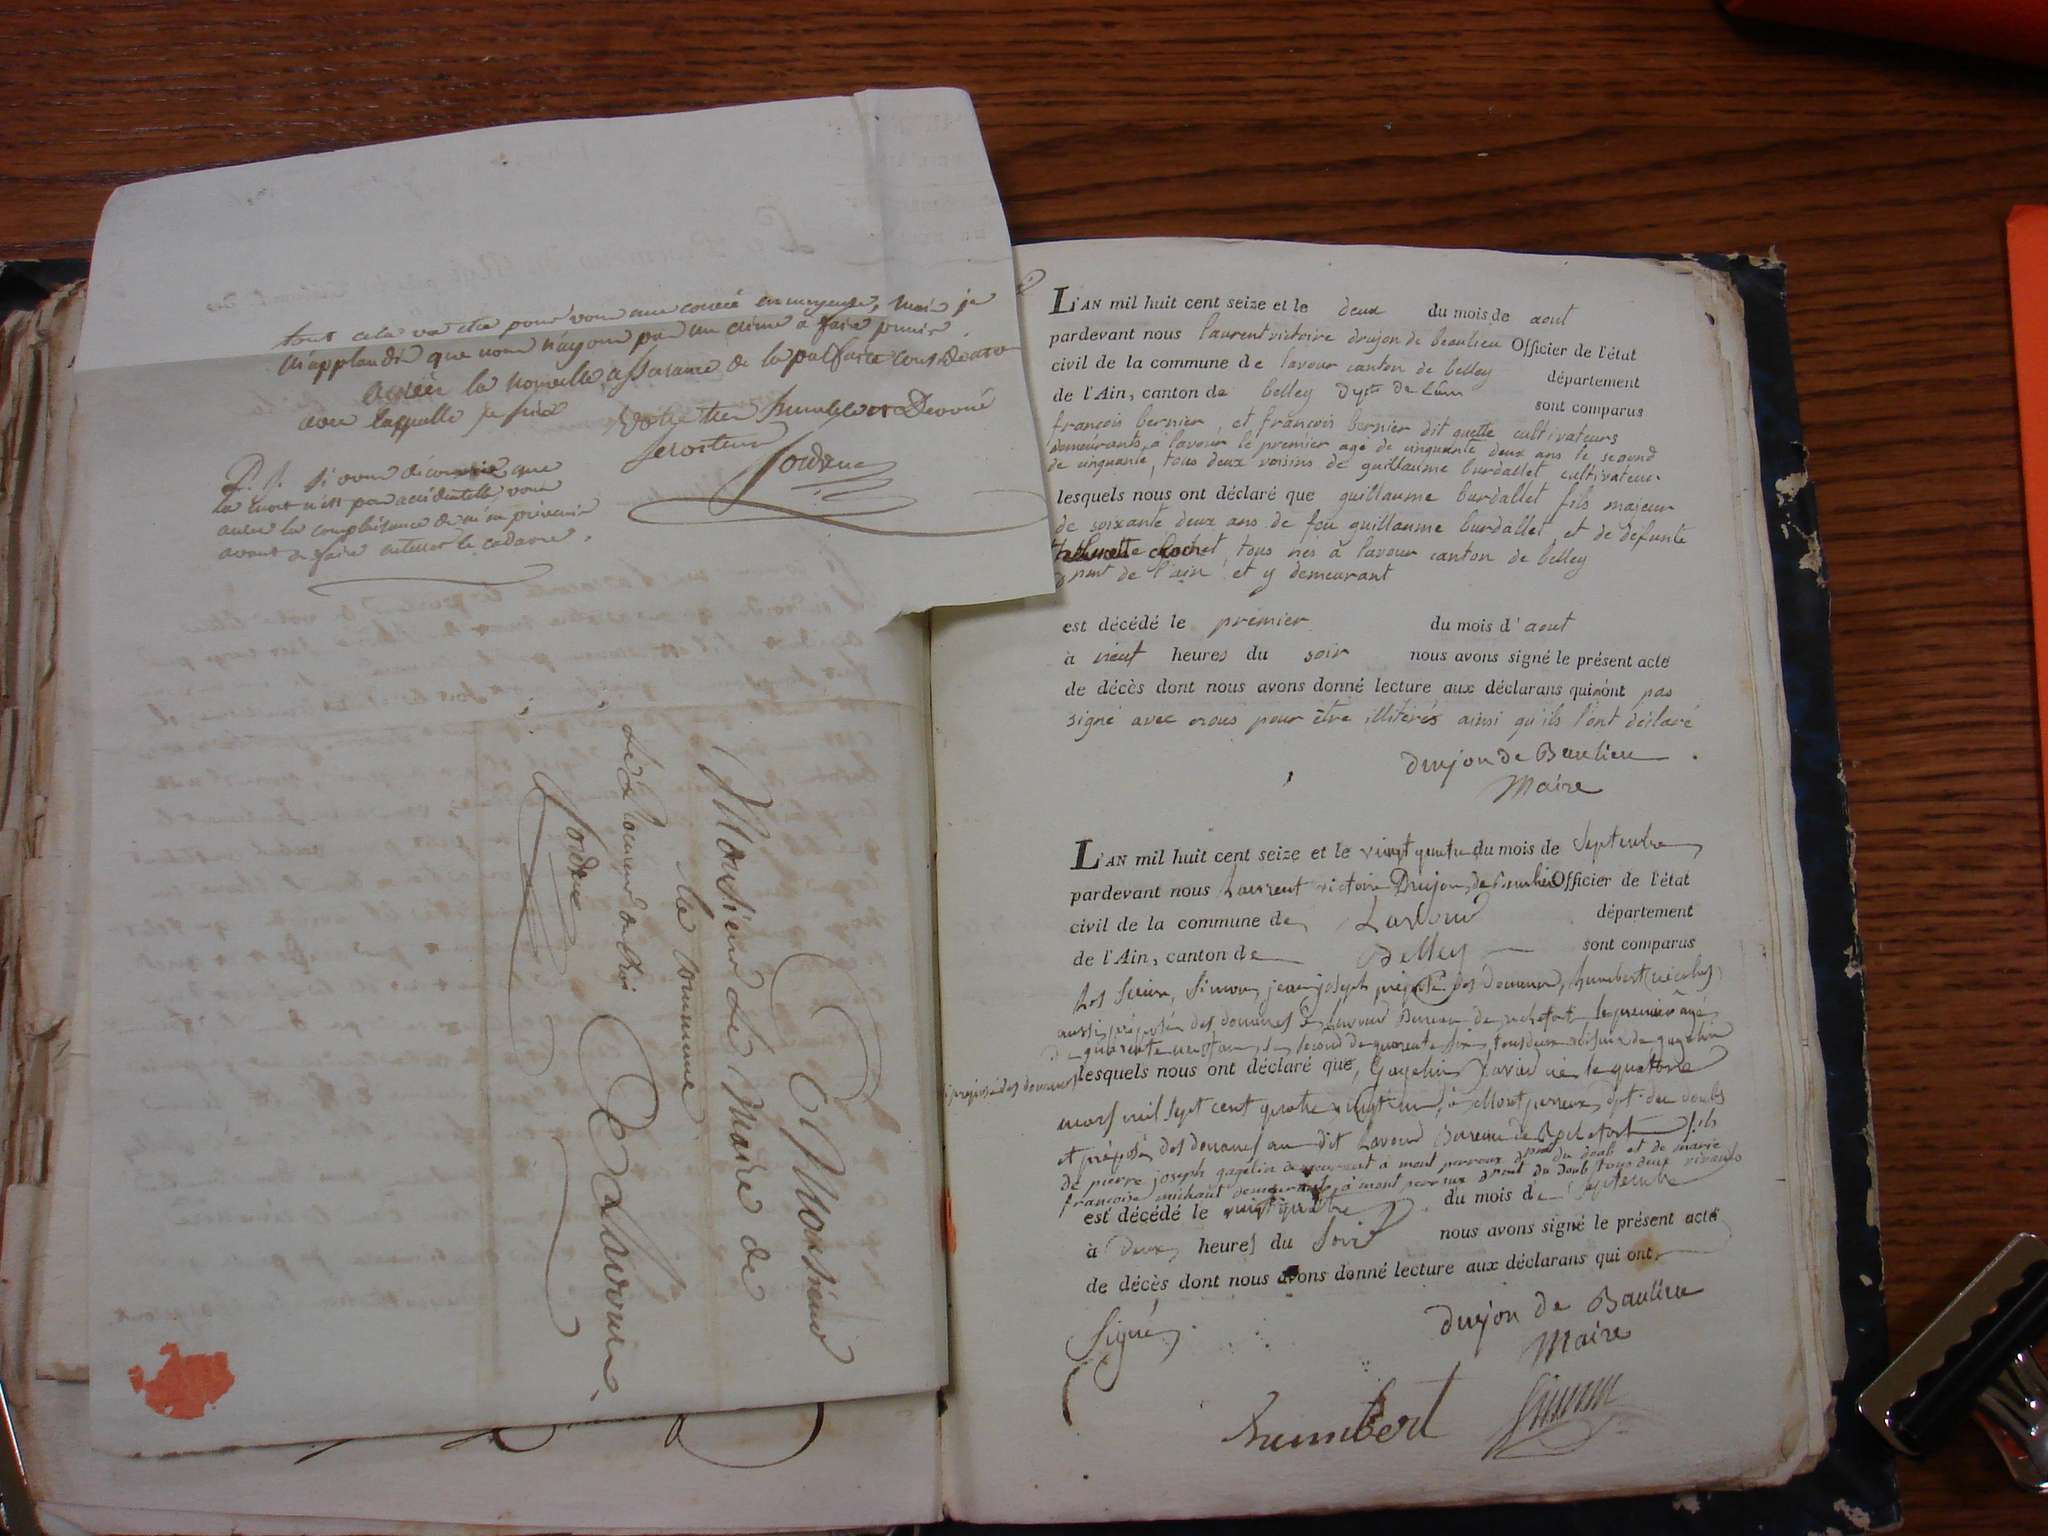 tout cela va être pour vous une corvée ennuyeuse, mais je
m'applaudis que nous n'ayons pas un crime à faire punir.
agréer la nouvelle assurance de la parfaite consideration
avec laquelle je suis votre tres humble et Devoué
serviteur
Jordan
P. S. si vous découvriez que
la mort n'est pas accidentelle, vous
aurez la complaisance de m'en prévenir
avant de faire inhumer le cadavre.
A Monsieur
Monsieur le Maire de
la commune
De Lavour
Le Procureur du Roi
Jordan
L'AN mil huit cent seize et le deux du mois de aout
pardevant nous laurent victoire drujon de beaulieu Officier de l'état
civil de la commune de lavour canton de belley département
de l'Ain, canton de belley dpt de l'ain sont comparus
françois bernier, et françois bernier dit quette cultivateurs
demeurants à lavour le premier agé de cinquante deux ans le second
de cinquante, tous deux voisins de guillaume burdallet cultivateur
lesquels nous ont déclaré que guillaume burdallet fils majeur
de soixante deux ans de feu guillaume burdallet et de défunte
chochet, tous nés à lavour canton de belley
dpmt de l'ain et y demeurant
est décédé le premier du mois d'aout
à neuf heures du soir nous avons signé le présent acte
de décès dont nous avons donné lecture aux déclarans qui n'ont pas
signé avec nous pour être illitérés ainsi qu'ils l'ont déclaré
Drujon de Baulieu
Maire
L'AN mil huit cent seize et le vingt quatre du mois de Septembre
pardevant nous Laurent victoire Drujon de Beaulieu Officier de l'état
civil de la commune de Lavour département
de l'Ain, canton de Belley sont comparus
Les Sieurs, Simon, jean joseph préposé des douanes, humbert nicolas
aussi préposé des douanes à Lavour Bureau de rochefort le premier âgé
de quarante neuf ans, le second de quarante six, tous deux voisins de gagelin
préposé des douanes
lesquels nous ont déclaré que, Gagelin Xavier né le quatorze
mars mil sept cent quatre vingt un, à Montperreux, dpt. du doubs
et préposé des douanes au dit Lavour Bureau de Rochefort fils
de pierre joseph gagelin demeurant à mont perreux dpmt du doub et de marie
françoise michaut demeurants à mont perreux dpmt du doub tous deux vivants
est décédé le vingt quatre du mois de Septembre
à Deux heures du Soir nous avons signé le présent acte
de décès dont nous avons donné lecture aux déclarans qui ont
Signé,
Drujon de Baulieu
Maire
humbert Simon